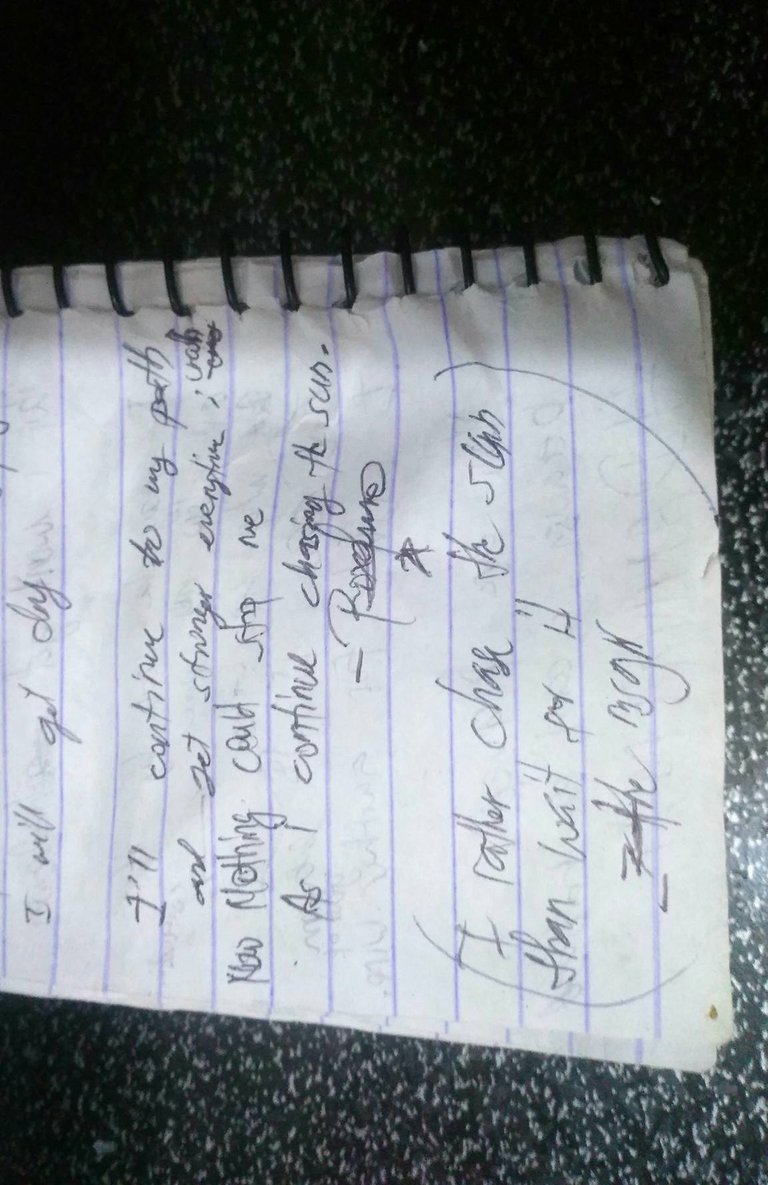 I will get dry
I'll continue to my path
and get stronger everytime i wah
Now Nothing could stop me
As I continue chasing the sun.
I rather chase the sun
than wait for it